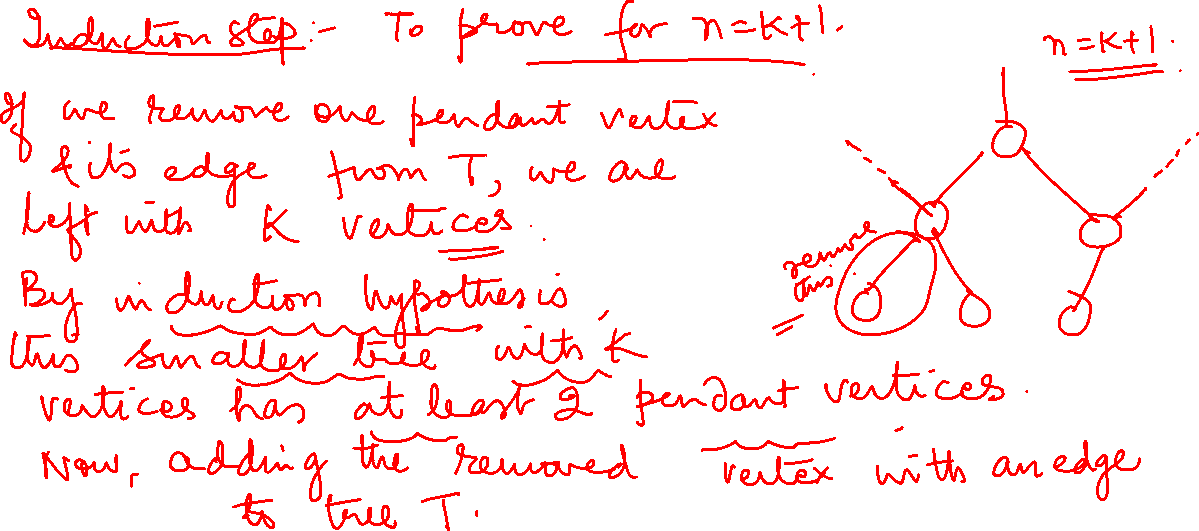 Induction step:- To prove for n=K+1.
n=K+1.
If we remove one pendant vertex
& its edge from T, we are
left with K vertices.
remove
this.
By induction hypothesis,
this smaller tree with K
vertices has at least 2 pendant vertices.
Now, adding the removed vertex with an edge
to tree T.